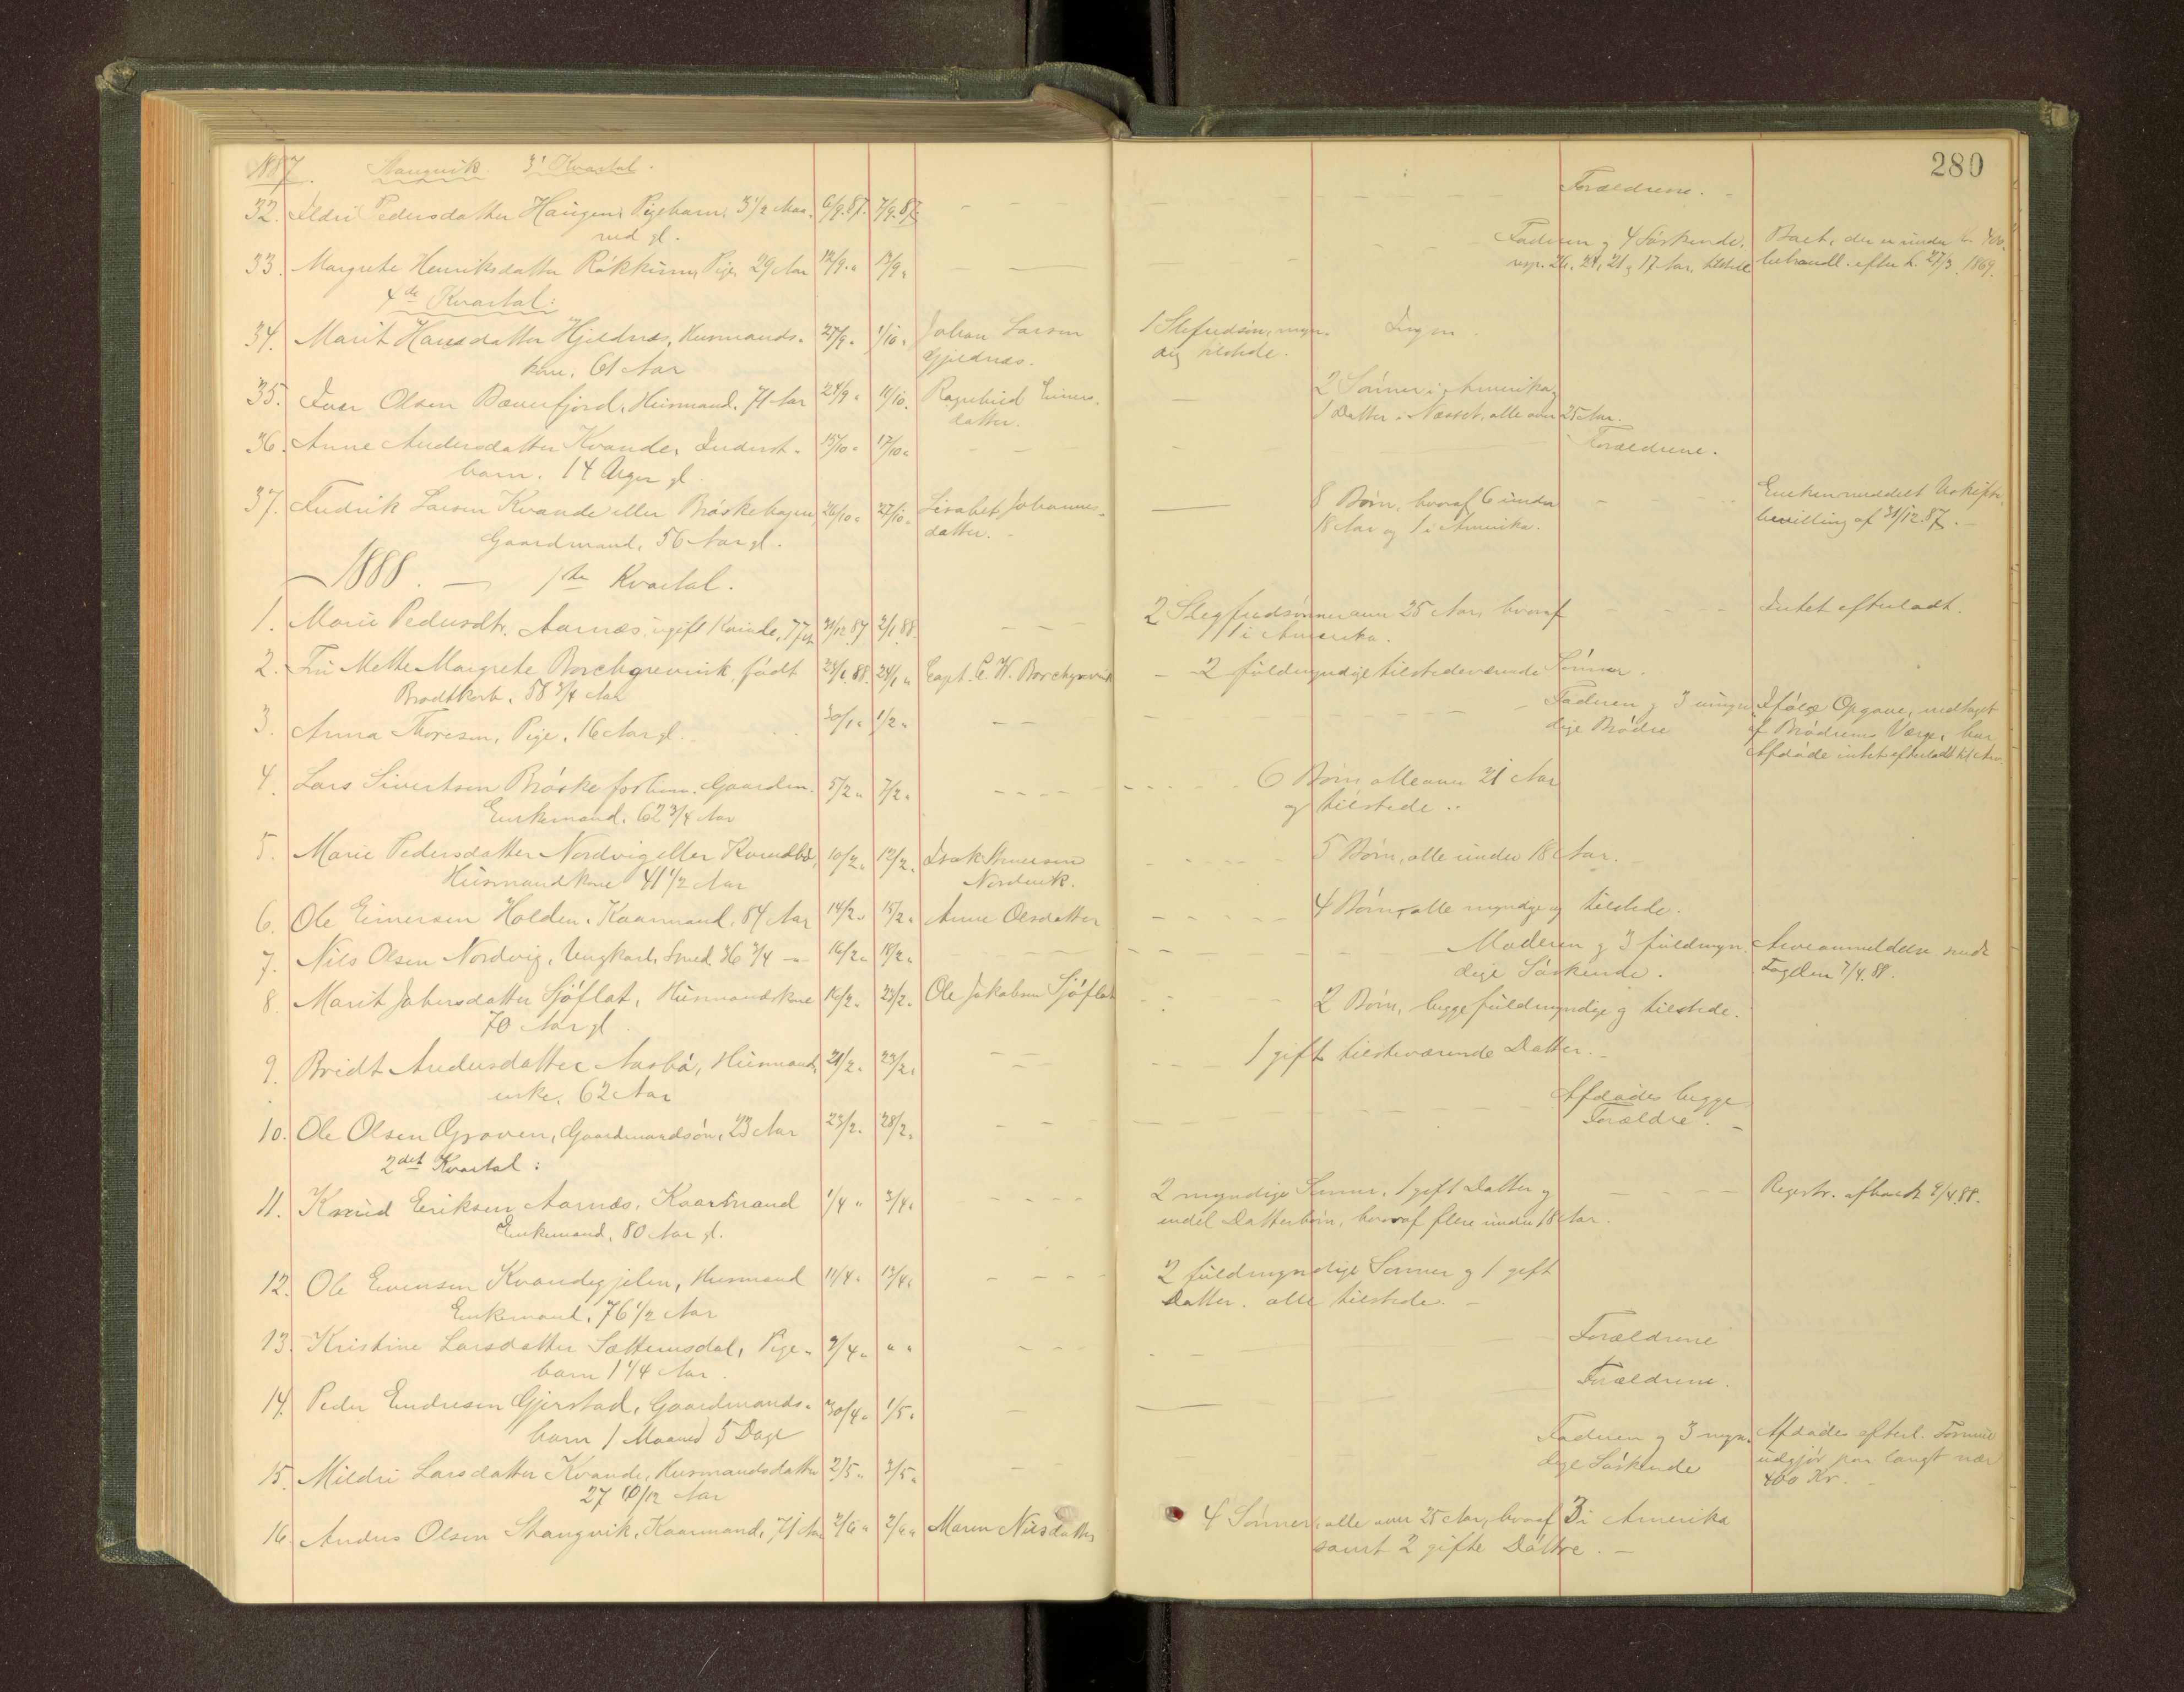 280
1887. Stangvik. 3' Kvartal.
32. Ildri Pedersdatter Haugen, Pigebarn, 3 1/2 Maa- 6/9.87. 7/9.87. Forældrene.
ned gl.
33. Margrete Henriksdatter Røkkum, Pige, 29 Aar 12/9 " 13/9 " Faderen og 4 Søskende, Boet, der er under Kr. 400,
resp. 26, 24, 21 og 17 Aar, tilstede behandl. efter L. 27/3 1869.
4de Kvartal:
34. Marit Hansdatter Hjeldnæs, Husmands- 27/9 " 1/10 " Johan Larsen 1 Stefudsøn, myn- Ingen.
kone, 61 Aar Gjeldnæs. dig tilstede.
35. Iver Olsen Bæverfjord, Husmand, 71 Aar 24/9 " 11/10 " Ragnhild Einers- 2 Sønner i Amerika,
datter. 1 Datter i Næsset, alle over 25 Aar.
36. Anne Andersdatter Kvande, Inderst- 15/10 " 17/10 " Forældrene.
barn. 14 Uger gl.
37. Fredrik Larsen Kvande eller Brøskehagen, 26/10 " 27/10 " Lisabet Johannes- 8 Børn, hvoraf 6 under Enken meddelt Uskifte-
Gaardmand, 56 Aar gl. datter. 18 Aar og 1 i Amerika. bevilling af 31/12.87.
1888. 1ste Kvartal.
1. Marie Pedersdtr. Aarnæs, ugift Kvinde, 77 31/12 87 2/1 88. 2 Slegfredsønner over 25 Aar, hvoraf Intet efterladt.
1 i Amerika.
2. Fru Mette Margrete Borchgrevink, født 23/1 88. 24/1 " Capt. C. W. Borchgrevink 2 fuldmyndige tilstedeværende Sønner.
Brodtkorb. 58 3/4 Aar
3. Anna Thoresen, Pige, 16 Aar gl. 30/1 " 1/2 " Faderen og 3 umyn- Ifølge Opgave, modtaget
dige Brødre af Brødrenes Værge, har
Afdøde intet efterladt til Arv.
4. Lars Sivertsen Brøske forhenv. Gaardm. 5/2 " 7/2 " 6 Børn alle over 21 Aar
Enkemand, 62 3/4 Aar og tilstede.
5. Marie Pedersdatter Nordvig eller 10/2 " 12/2 " Isak 5 Børn, alle under 18 Aar.
Husmandkone 41 1/2 Aar Nordvik.
6. Ole Einersen Holden, Kaarmand, 84 Aar 14/2 " 15/2 " Anne Olsdatter 4 Børn, alle myndige og tilstede.
7. Nils Olsen Nordvig, Ungkarl, Smed. 36 3/4 - 16/2 " 18/2 " Moderen og 3 fuldmyn- Arveanmeldelse modt.
dige Søskende. Fogden 7/4.88.
8. Marit Jakobsdatter Sjøflat, Husmandskone 16/2 " 23/2 " Ole Jakobsen Sjøflat 2 Børn, begge fuldmyndige og tilstede.
70 Aar gl.
9. Bredt Andersdatter Aasbø, Husmands- 21/2 " 23/2 " 1 gift tilsteværende Datter.
enke, 62 Aar
10. Ole Olsen Groven, Gaardmandsøn, 23 Aar 23/2 " 28/2 " Afdødes begge
Forældre.
2det Kvartal:
11. Knud Eriksen Aarnæs, Kaarmand 1/4 " 3/4 " 2 myndige Sønner, 1 gift Datter og Registr. afholdt 9/4.88.
Enkemand, 80 Aar gl. endel Datterbørn, hvoraf flere under 18 Aar.
12. Ole Evensen Kvandegjelen, Husmand 11/4 " 13/4 " 2 fuldmyndige Sønner og 1 gift
Enkemand, 76 1/2 Aar Datter. alle tilstede.
13. Kristine Larsdatter Sættemsdal, Pige- 9/4 " " " Forældrene
barn 1 1/4 Aar.
14. Peder Endresen Gjerstad, Gaardmands- 30/4 " 1/5 " Forældrene.
barn 1 Maaned 5 Dage
15. Mildri Larsdatter Kvande, Husmandsdatter 2/5 " 3/5 " Faderen og 3 myn- Afdødes efterl. Formue
27 10/12 Aar dige Søskende udgjør paa langt nær
400 Kr.
16. Anders Olsen Stangvik, Kaarmand, 71 Aar 2/6 " 2/6 " Maren Nilsdatter 4 Sønner, alle over 25 Aar, hvoraf 3 i Amerika
samt 2 gifte Døttre.